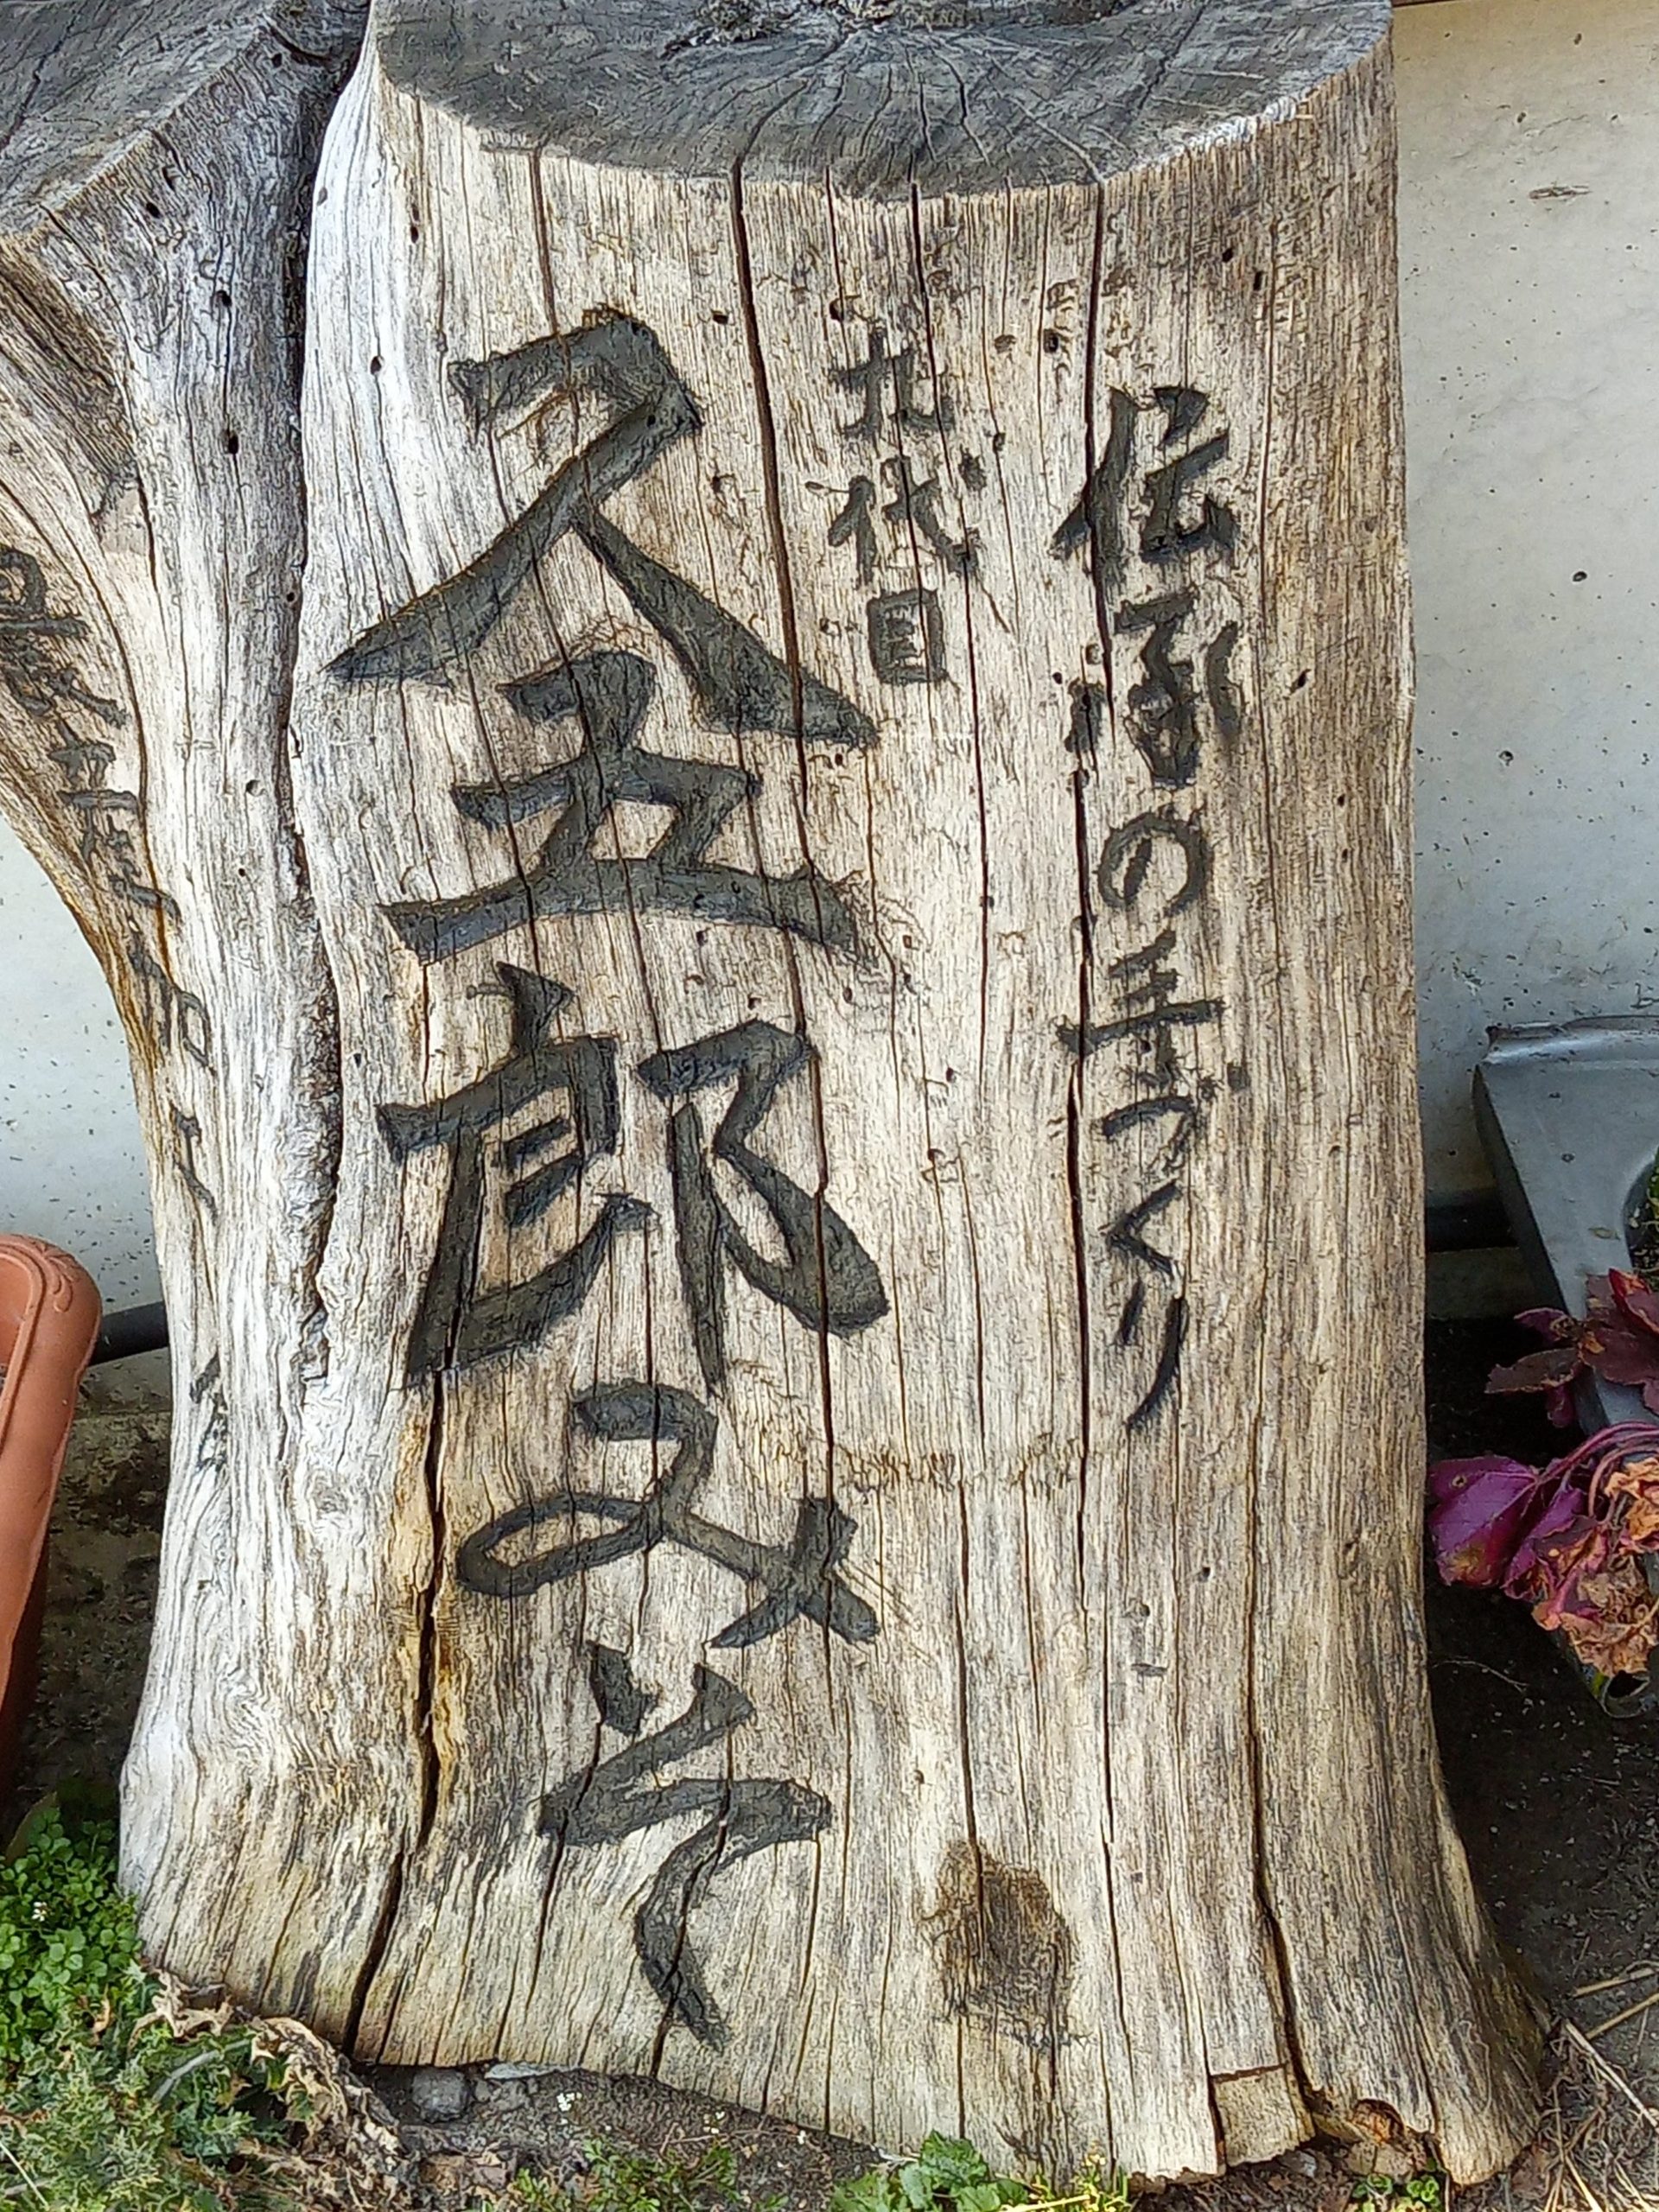 伝承の手づくり
九代目
久五郎みそ